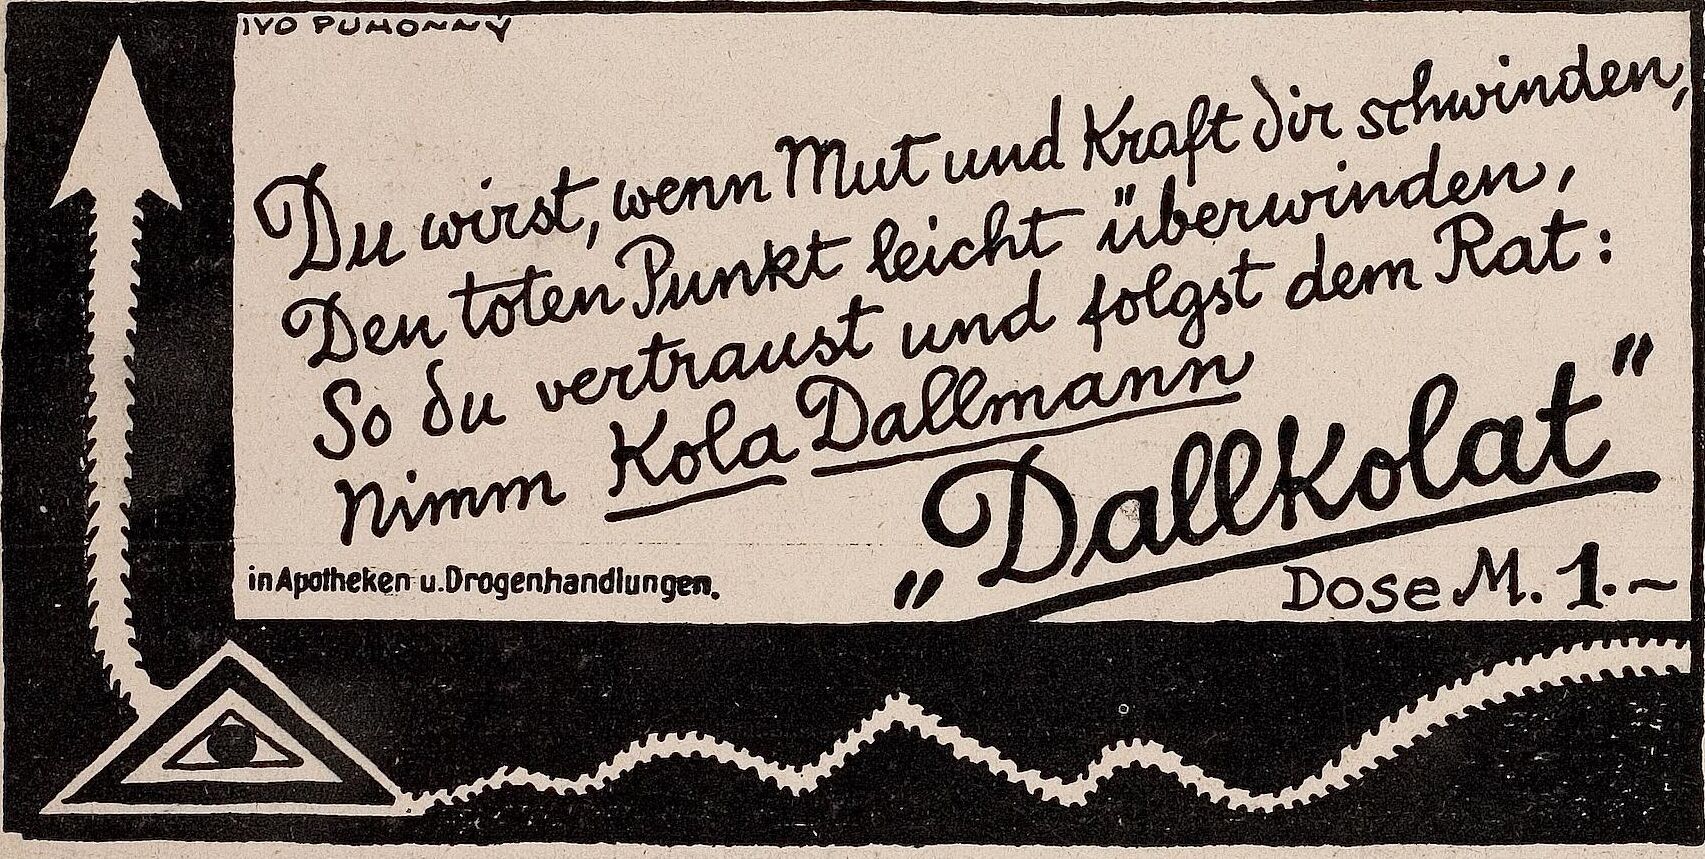 IVO PUHONNY
Du wirst, wenn Mut und Kraft dir schwinden,
Den toten Punkt leicht überwinden,
So du vertraust und folgst dem Rat:
Nimm Kola Dallmann
„Dallkolat"
in Apotheken u. Drogenhandlungen.
Dose M. 1.-